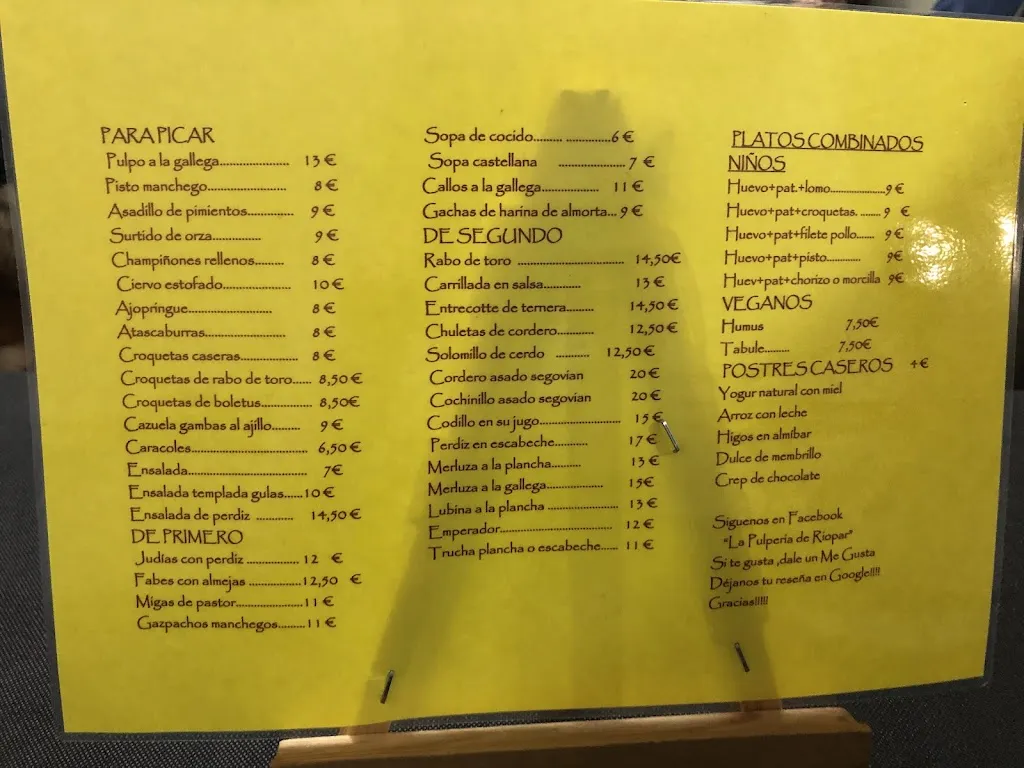 PARA PICAR
Pulpo a la gallega..................... 13 €
Pisto manchego........................ 8 €
Asadillo de pimientos.............. 9 €
Surtido de orza............... 9 €
Champiñones rellenos......... 8 €
Ciervo estofado..................... 10 €
Ajopringue.......................... 8 €
Atascaburras......................... 8 €
Croquetas caseras.......................... 8 €
Croquetas de rabo de toro...... 8,50 €
Croquetas de boletus................ 8,50€
Cazuela gambas al ajillo......... 9 €
Caracoles........................................... 6,50 €
Ensalada.................................... 7€
Ensalada templada gulas......10 €
Ensalada de perdiz ............ 14,50 €
DE PRIMERO
Judías con perdiz ................ 12 €
Fabes con almejas ................12,50 €
Migas de pastor.....................11 €
Gazpachos manchegos.........11 €
Sopa de cocido......... .............6 €
Sopa castellana .................... 7 €
Callos a la gallega.................. 11 €
Gachas de harina de almorta... 9 €
DE SEGUNDO
Rabo de toro ................................ 14,50€
Carrillada en salsa............ 13 €
Entrecotte de ternera......... 14,50 €
Chuletas de cordero............ 12,50 €
Solomillo de cerdo ........... 12,50 €
Cordero asado segovian 20 €
Cochinillo asado segovian 20 €
Codillo en su jugo......................... 15 €
Perdiz en escabeche........... 17 €
Merluza a la plancha.......... 13 €
Merluza a la gallega................... 15€
Lubina a la plancha ...................... 13 €
Emperador................................... 12 €
Trucha plancha o escabeche...... 11 €
PLATOS COMBINADOS
NIÑOS
Huevo+pat.+lomo......................9 €
Huevo+pat+croquetas. ........ 9 €
Huevo+pat+filete pollo...... 9 €
Huevo+pat+pisto............. 9€
Huev+pat+chorizo o morcilla 9€
VEGANOS
Humus 7,50€
Tabule......... 7,50€
POSTRES CASEROS 4€
Yogur natural con miel
Arroz con leche
Higos en almíbar
Dulce de membrillo
Crep de chocolate
Siguenos en Facebook
"La Pulpería de Riopar"
Si te gusta ,dale un Me Gusta
Déjanos tu reseña en Google!!!!
Gracias!!!!!